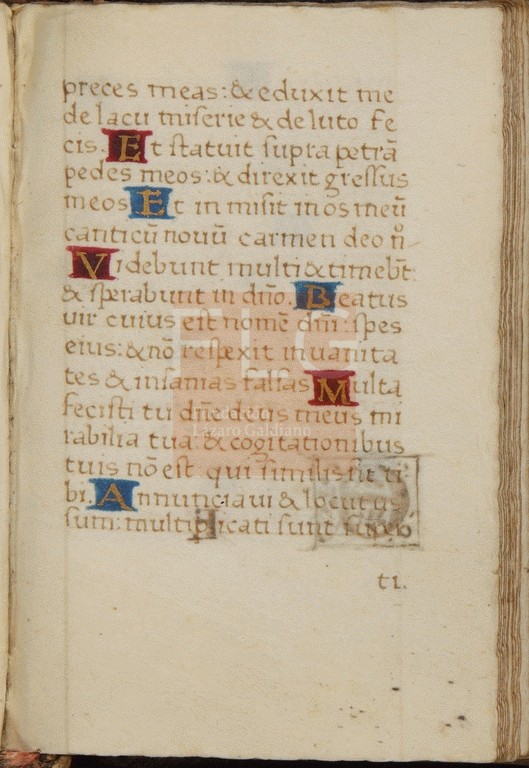 preces meas: & eduxit me
de lacu miserie & de luto fe
cis. Et statuit supra petrā
pedes meos: & direxit gressus
meos Et in misit in os meū
canticū novū carmen deo n̄o.
Videbunt multi & timebt:
& sperabunt in dn̄o. Beatus
vir cuius est nomē dn̄i: spes
eius: & nō respexit in vanita
tes & insanias falsas Multa
fecisti tu dn̄e deus meus mi
rabilia tua & cogitationibus
tuis nō est qui similis sit ti
bi. Annunciavi & locutus
sum: multiplicati sunt
ti.
FLG
Lázaro Galdiano